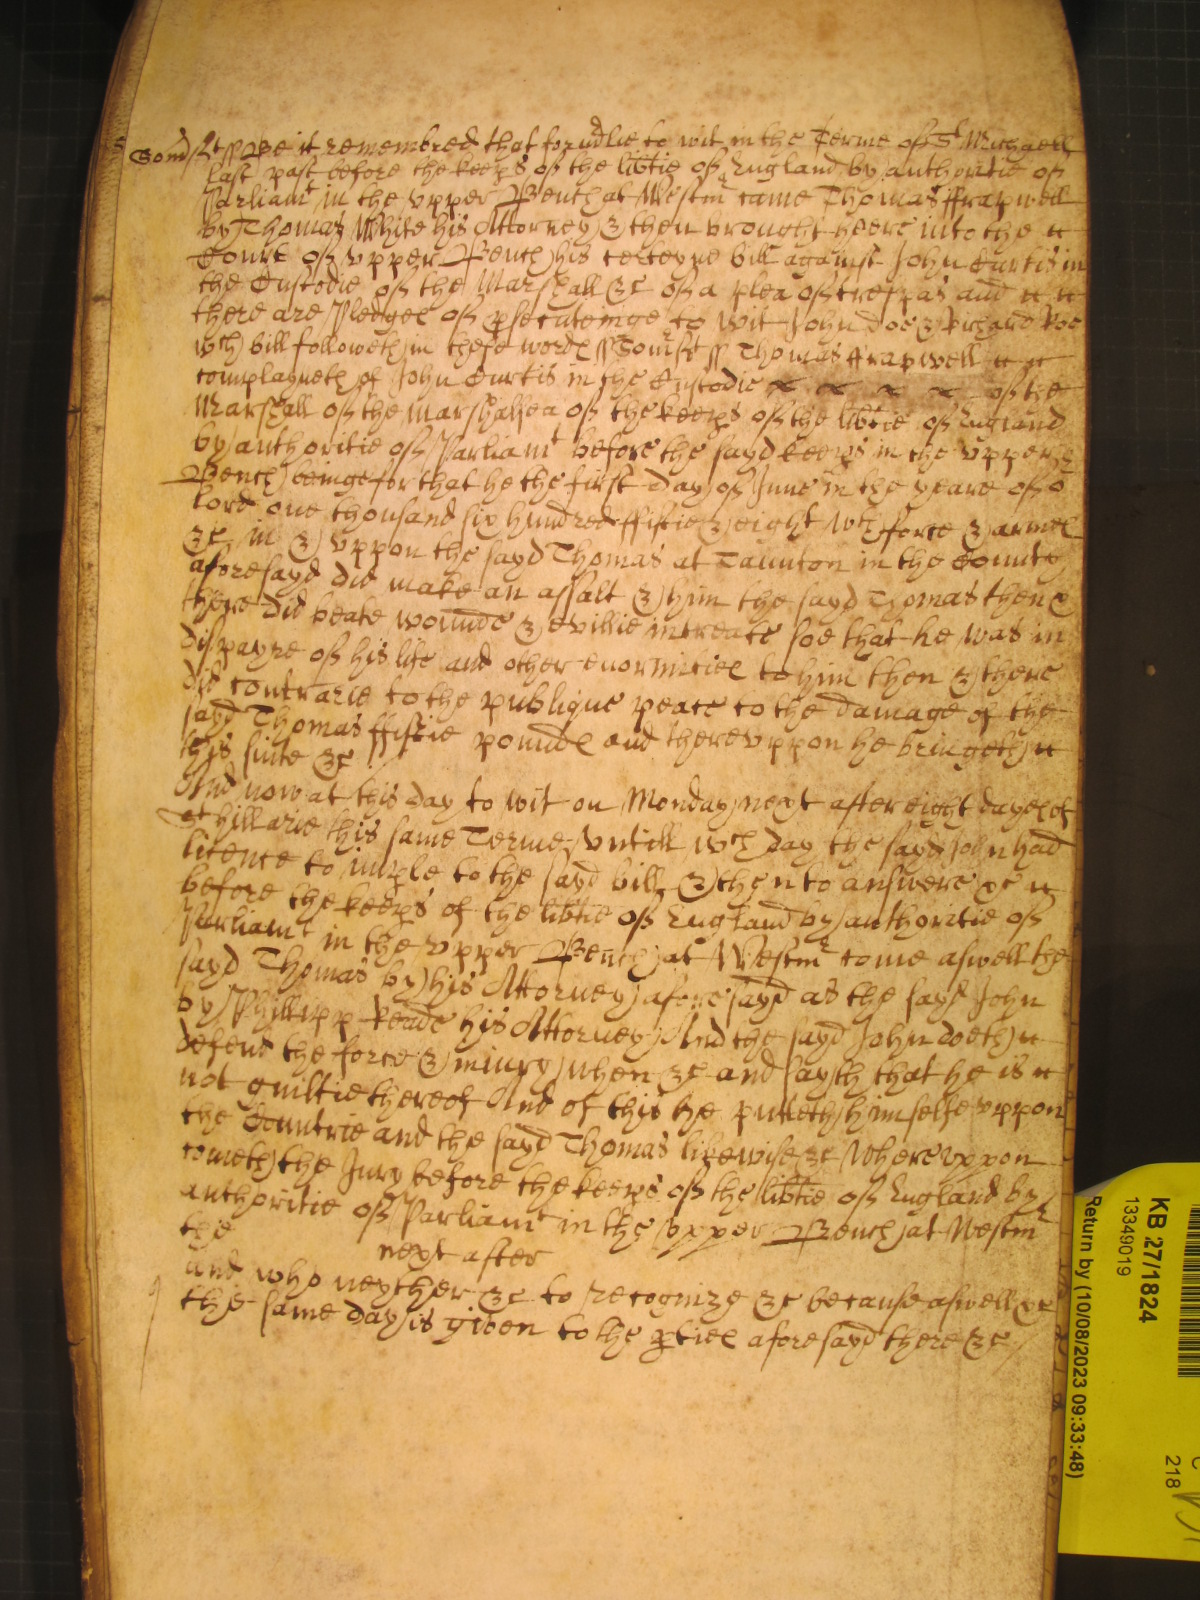 Somst ss Be it remembred that formlie to wit in the Terme of St Michaell
last past before the keeps of the libtie of England by authoritie of
Parliamt in the upper Bench at Westmr came Thomas ffrapwell
by Thomas White his Attorney & then brought heere into the
Court of upper Bench his certeyne bill against John Curtis in
the Custodie of the Marshall &c of a plea of trespas and
there are Pledges of psecuteinge to wit John Doe & Richard Roe
wch bill followeth in these words ss Somst ss Thomas ffrapwell
complayneth of John Curtis in the Custodie of the
Marshall of the Marshalsea of the keeps of the libtie of England
by authoritie of Parliamt before the sayd keeps in the upper
Bench beinge for that he the first day of June in the yeare of o
lord one thousand six hundred ffiftie & eight wth force & armes
&c in & uppon the sayd Thomas at Taunton in the County
aforesayd did make an assalt & him the sayd Thomas then &
there did beate wounde & evillie intreate soe that he was in
dispayre of his life and other enormities to him then & there
did contrarie to the publique peace to the damage of the
sayd Thomas ffiftie pounds and thereuppon he bringeth
this suite &c
And now at this day to wit on Monday next after eight dayes of
St Hillarie this same Terme untill wch day the sayd John had
licence to imple to the sayd bill & then to answere &c
before the keeps of the libtie of England by authoritie of
Parliamt in the upper Bench at Westmr come aswell the
sayd Thomas by his Attorney aforesayd as the sayd John
by Phillipp Keade his Attorney And the sayd John doeth
defend the force & iniury when &c and sayth that he is
not guiltie thereof And of this he putteth himselfe uppon
the Countrie and the sayd Thomas likewise &c Whereuppon
cometh the Jury before the keeps of the libtie of England by
authoritie of Parliamt in the upper Bench at Westmr
the next after
and who neyther &c to recognize &c because aswell &c
the same day is given to the pties aforesayd there &c
KB 27/1824
13349019
Return by (10/08/2023 09:33:48)
218